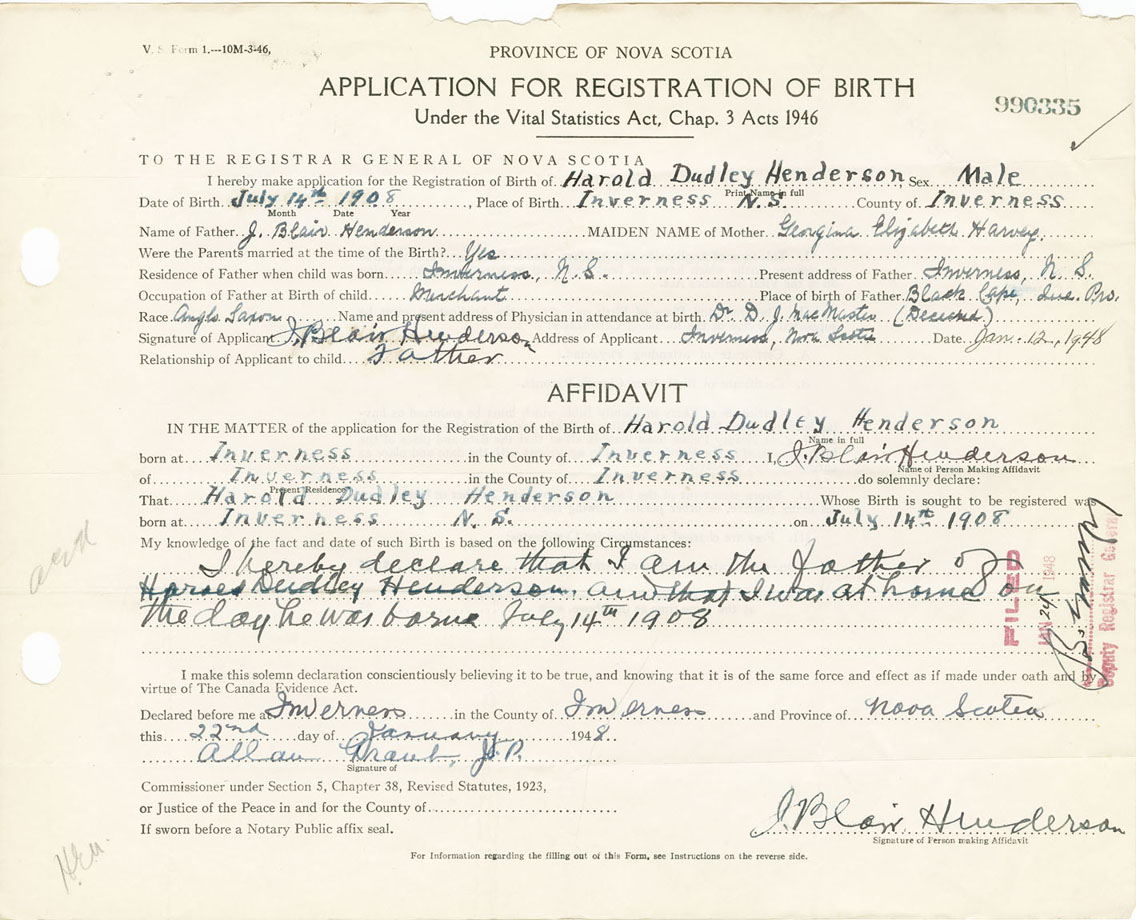 V. S. Form 1.---10M-3-46,
PROVINCE OF NOVA SCOTIA
APPLICATION FOR REGISTRATION OF BIRTH
990335
Under the Vital Statistics Act, Chap. 3 Acts 1946
TO THE REGISTRAR GENERAL OF NOVA SCOTIA
I hereby make application for the Registration of Birth of Harold Dudley Henderson Sex Male
Print Name in full
Date of Birth July 14th 1908, Place of Birth Inverness N.S. County of Inverness
Month Date Year
Name of Father J. Blair Henderson MAIDEN NAME of Mother Georgina Elizabeth Harvey
Were the Parents married at the time of the Birth? Yes
Residence of Father when child was born Inverness, N.S. Present address of Father Inverness, N.S.
Occupation of Father at Birth of child Merchant Place of birth of Father Black Cape, Que. Pro.
Race Anglo Saxon Name and present address of Physician in attendance at birth Dr. D. J. MacMaster (Deceased)
Signature of Applicant J. Blair Henderson Address of Applicant Inverness, Nova Scotia Date Jan. 12, 1948
Relationship of Applicant to child Father
AFFIDAVIT
IN THE MATTER of the application for the Registration of the Birth of Harold Dudley Henderson
Name in full
born at Inverness in the County of Inverness I, J. Blair Henderson
Name of Person Making Affidavit
of Inverness in the County of Inverness do solemnly declare:
Present Residence
That Harold Dudley Henderson Whose Birth is sought to be registered was
born at Inverness N.S. on July 14th 1908
My knowledge of the fact and date of such Birth is based on the following Circumstances:
I hereby declare that I am the father of
Harold Dudley Henderson. and that I was at home on
the day he was borne July 14th 1908
FILED
JAN 24 1948
Deputy Registrar General
I make this solemn declaration conscientiously believing it to be true, and knowing that it is of the same force and effect as if made under oath and by
virtue of The Canada Evidence Act.
Declared before me at Inverness in the County of Inverness and Province of Nova Scotia
this 22nd day of January 1948
Allan J.P.
Signature of
Commissioner under Section 5, Chapter 38, Revised Statutes, 1923,
or Justice of the Peace in and for the County of
J. Blair Henderson
If sworn before a Notary Public affix seal.
Signature of Person making Affidavit
For Information regarding the filling out of this Form, see Instructions on the reverse side.